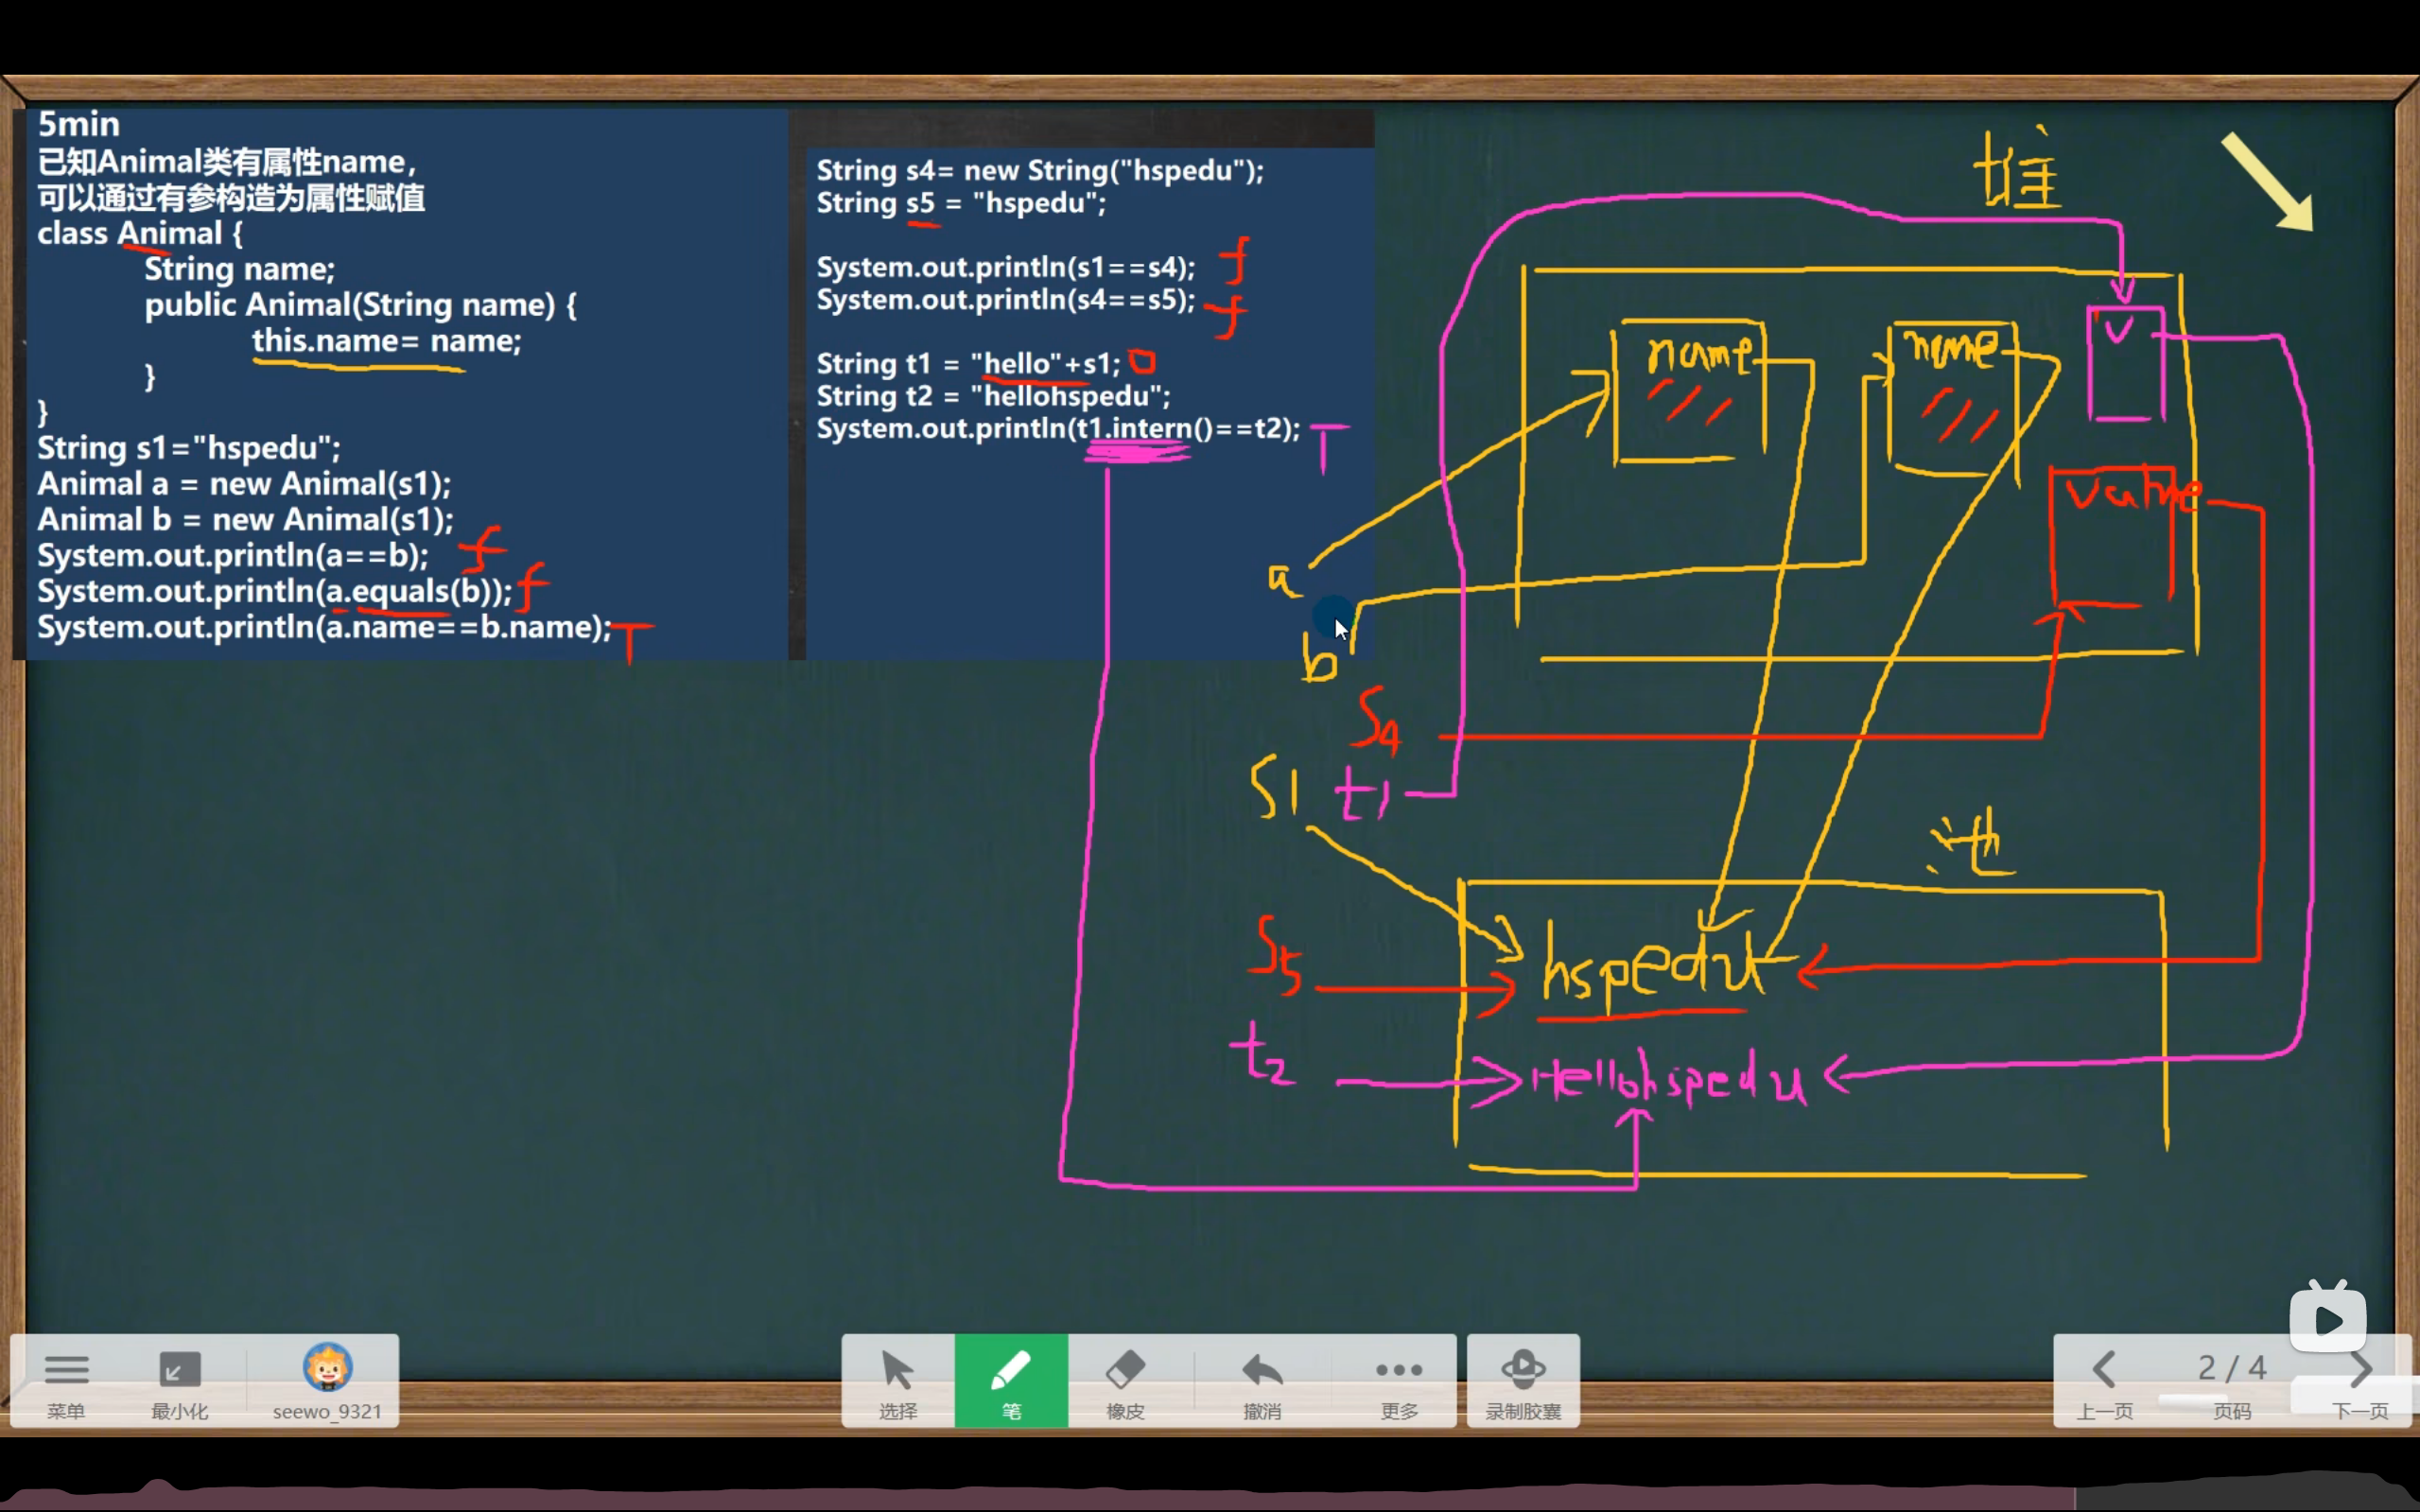 5min
已知Animal类有属性name，
可以通过有参构造为属性赋值
class Animal {
String name;
public Animal(String name) {
this.name= name;
}
}
String s1="hspedu";
Animal a = new Animal(s1);
Animal b = new Animal(s1);
System.out.println(a==b); f
System.out.println(a.equals(b)); f
System.out.println(a.name==b.name); T
String s4= new String("hspedu");
String s5 = "hspedu";
System.out.println(s1==s4); f
System.out.println(s4==s5); f
String t1 = "hello"+s1;
String t2 = "hellohspedu";
System.out.println(t1.intern()==t2); T
堆
name
name
v
value
a
b
S4
S1
t1
池
S5
hspedu
t2
Hellohspedu
菜单
最小化
seewo_9321
选择
笔
橡皮
撤消
更多
录制胶囊
上一页
2 / 4
页码
下一页